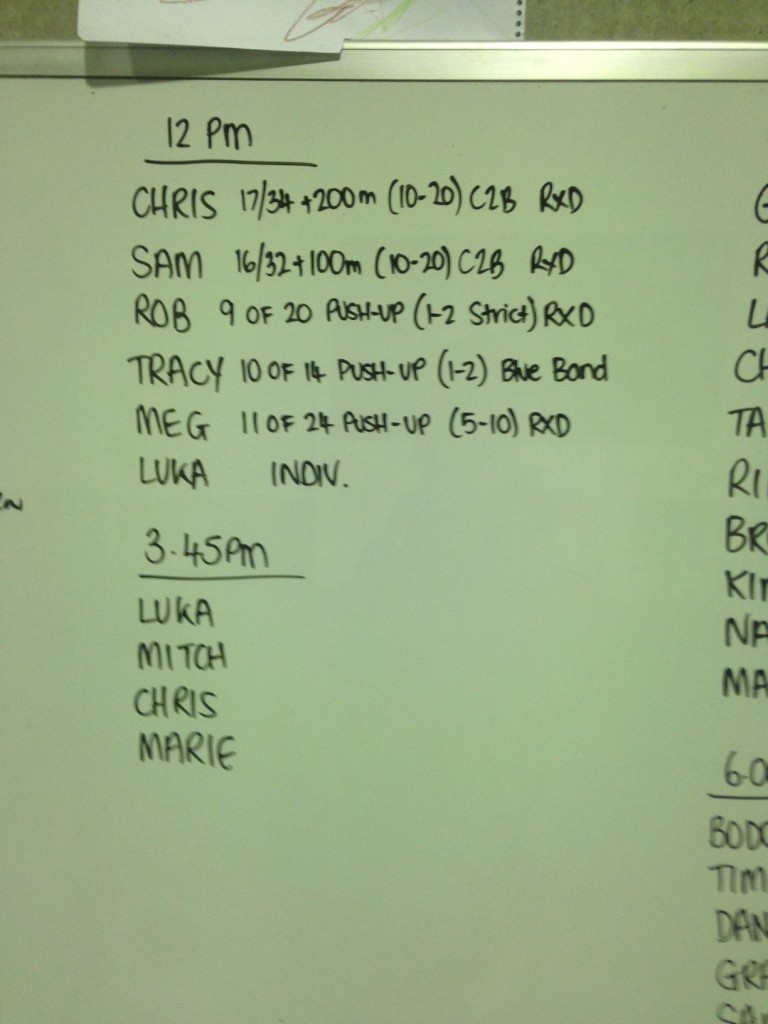 12 Pm
CHRIS 17/34 +200m (10-20) C2B RXD
SAM 16/32+100m (10-20) C2B RXD
ROB 9 OF 20 PUSH-UP (1-2 Strict) RXD
TRACY 10 OF 14 PUSH-UP (1-2) Blue Band
MEG 11 OF 24 PUSH-UP (5-10) RXD
LUKA INDIV.
3.45pm
LUKA
MITCH
CHRIS
MARIE
CH
TA
RI
BR
KI
NA
MA
TIM
DAN